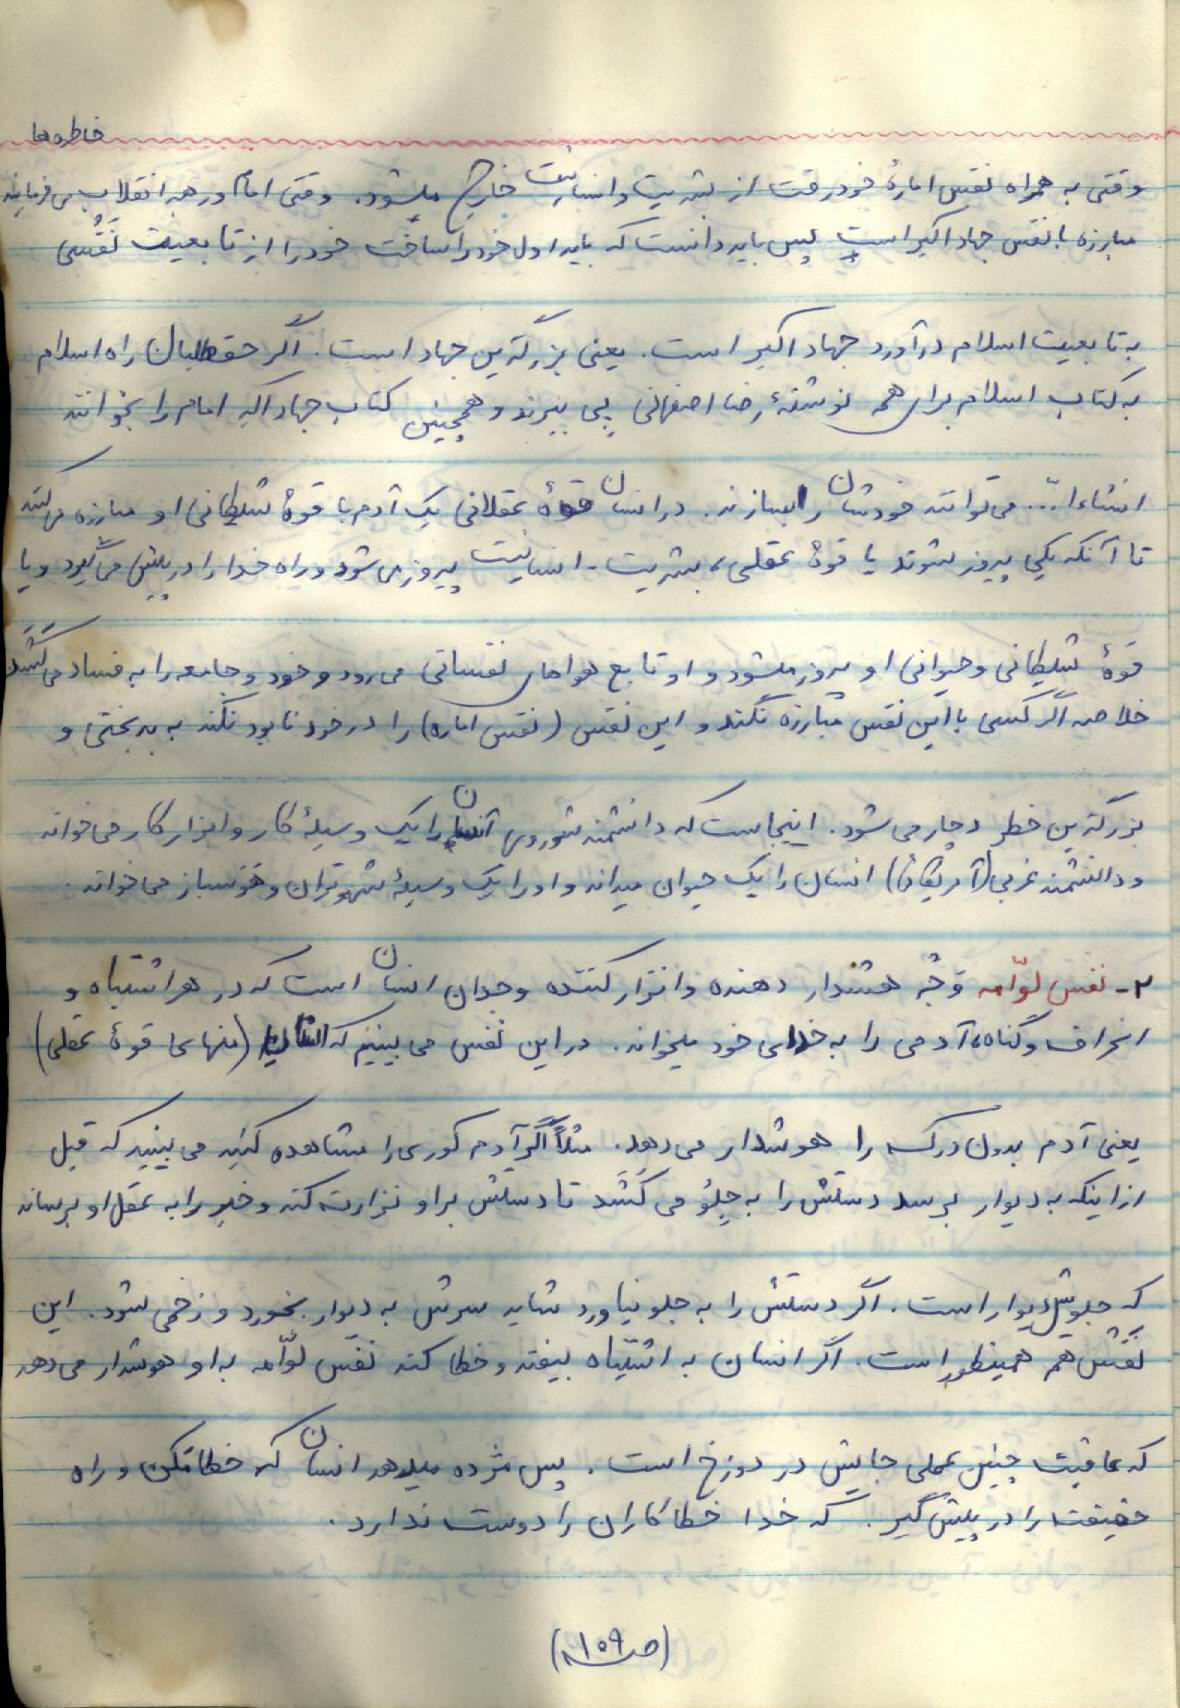 خاطره‌ها
وقتی به همراه نفس امارهٔ خود رفت از بشریت و انسانیت خارج میشود. وقتی امام و رهبر انقلاب می‌فرمایند
مبارزه با نفس جهاد اکبر است پس باید دانست که باید اول خود را ساخت خود را از تابعیت نَفْسی
به تابعیت اسلام درآورد جهاد اکبر است. یعنی بزرگترین جهاد است. اگر حقطلبان راه اسلام
به کتاب اسلام برای همه نوشتهٔ رضا اصفهانی پی ببرند و همچنین کتاب جهاد اکبر امام را بخوانند
انشاءا... می‌توانند خودشان را بسازند. در انسان قوهٔ عقلانی یک آدم با قوهٔ شیطانی او مبارزه می‌کند
تا آنکه یکی پیروز شوند یا قوهٔ عقلی، بشریت - انسانیت پیروز می‌شود و راه خدا را در پیش می‌گیرد و یا
قوهٔ شیطانی و حیوانی او پیروز میشود و او تابع هواهای نفسانی می‌رود و خود و جامعه را به فساد می‌کشد
خلاصه اگر کسی با این نفس مبارزه نکند و این نفس (نفس اماره) را در خود نابود نکند به بدبختی و
بزرگترین خطر دچار می‌شود. اینجاست که دانشمند شوروی انسان را یک وسیلهٔ کار و ابزار کار می‌خواند
و دانشمند غربی (آمریکائی) انسان را یک حیوان میداند و او را یک وسیلهٔ شهوتران و هوسباز می‌خواند.
۲- نفس لوّامه قوهٔ هشدار دهنده و انذار کننده وجدان انسان است که در هر اشتباه و
انحراف و گناه، آدمی را به خدای خود میخواند. در این نفس می‌بینیم که انسان (منهای قوهٔ عقلی)
یعنی آدم بدون درک را هوشدار می‌دهد. مثلاً اگر آدم کوری را مشاهده کنید می‌بینید که قبل
از اینکه به دیوار برسد دستش را به جلو می‌کشد تا دستش بر او نزارت کند و خبر را به عقل او برساند
که جلویش دیوار است. اگر دستش را به جلو نیاورد شاید سرش به دیوار بخورد و زخمی شود. این
نفس هم همینطور است. اگر انسان به اشتباه بیفتد و خطا کند نفس لوّامه به او هوشدار می‌دهد
که عاقبت چنین عملی جایش در دوزخ است. پس مژده میدهد انسان که خطا مکن و راه
حقیقت را در پیش گیر. که خدا خطاکاران را دوست ندارد.
(صفحه ۱۰۹)